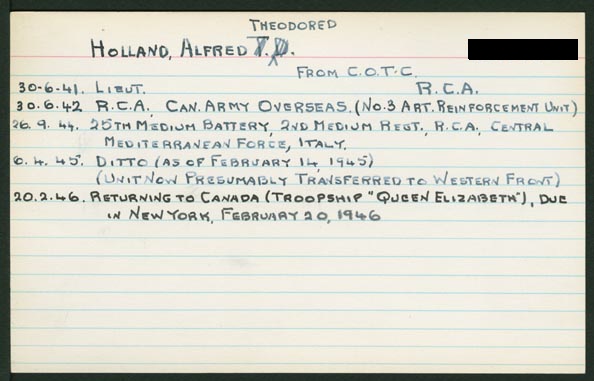 THEODORED
HOLLAND, ALFRED T.D.
FROM C.O.T.C.
30-6-41. LIEUT. R.C.A.
30.6.42 R.C.A. CAN. ARMY OVERSEAS. (NO.3 ART. REINFORCEMENT UNIT)
26.9.44. 25TH MEDIUM BATTERY, 2ND MEDIUM REGT., R.C.A., CENTRAL
MEDITERRANEAN FORCE, ITALY.
6.4.45. DITTO (AS OF FEBRUARY 14, 1945)
(UNIT NOW PRESUMABLY TRANSFERRED TO WESTERN FRONT)
20.2.46. RETURNING TO CANADA (TROOPSHIP "QUEEN ELIZABETH"), DUE
IN NEW YORK, FEBRUARY 20, 1946